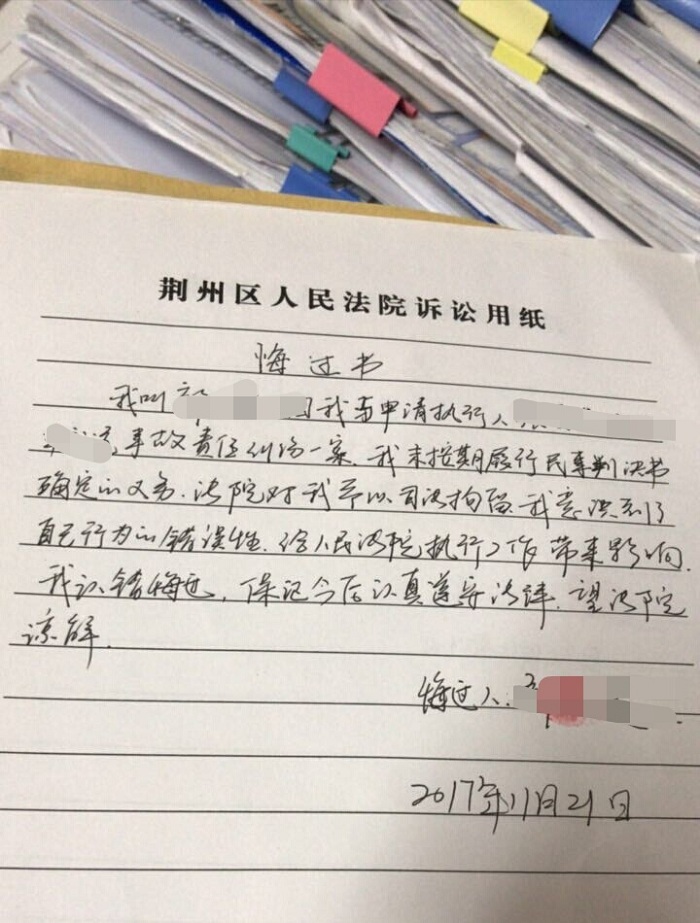 荆州区人民法院诉讼用纸
悔过书
我叫 因我与申请执行人
事故责任纠纷一案,我未按期履行民事判决书
确定的义务,法院对我予以司法拘留,我意识到了
自己行为的错误性,给人民法院执行工作带来影响,
我认错悔过,保证今后认真遵守法律,望法院
谅解.
悔过人:
2017年11月21日